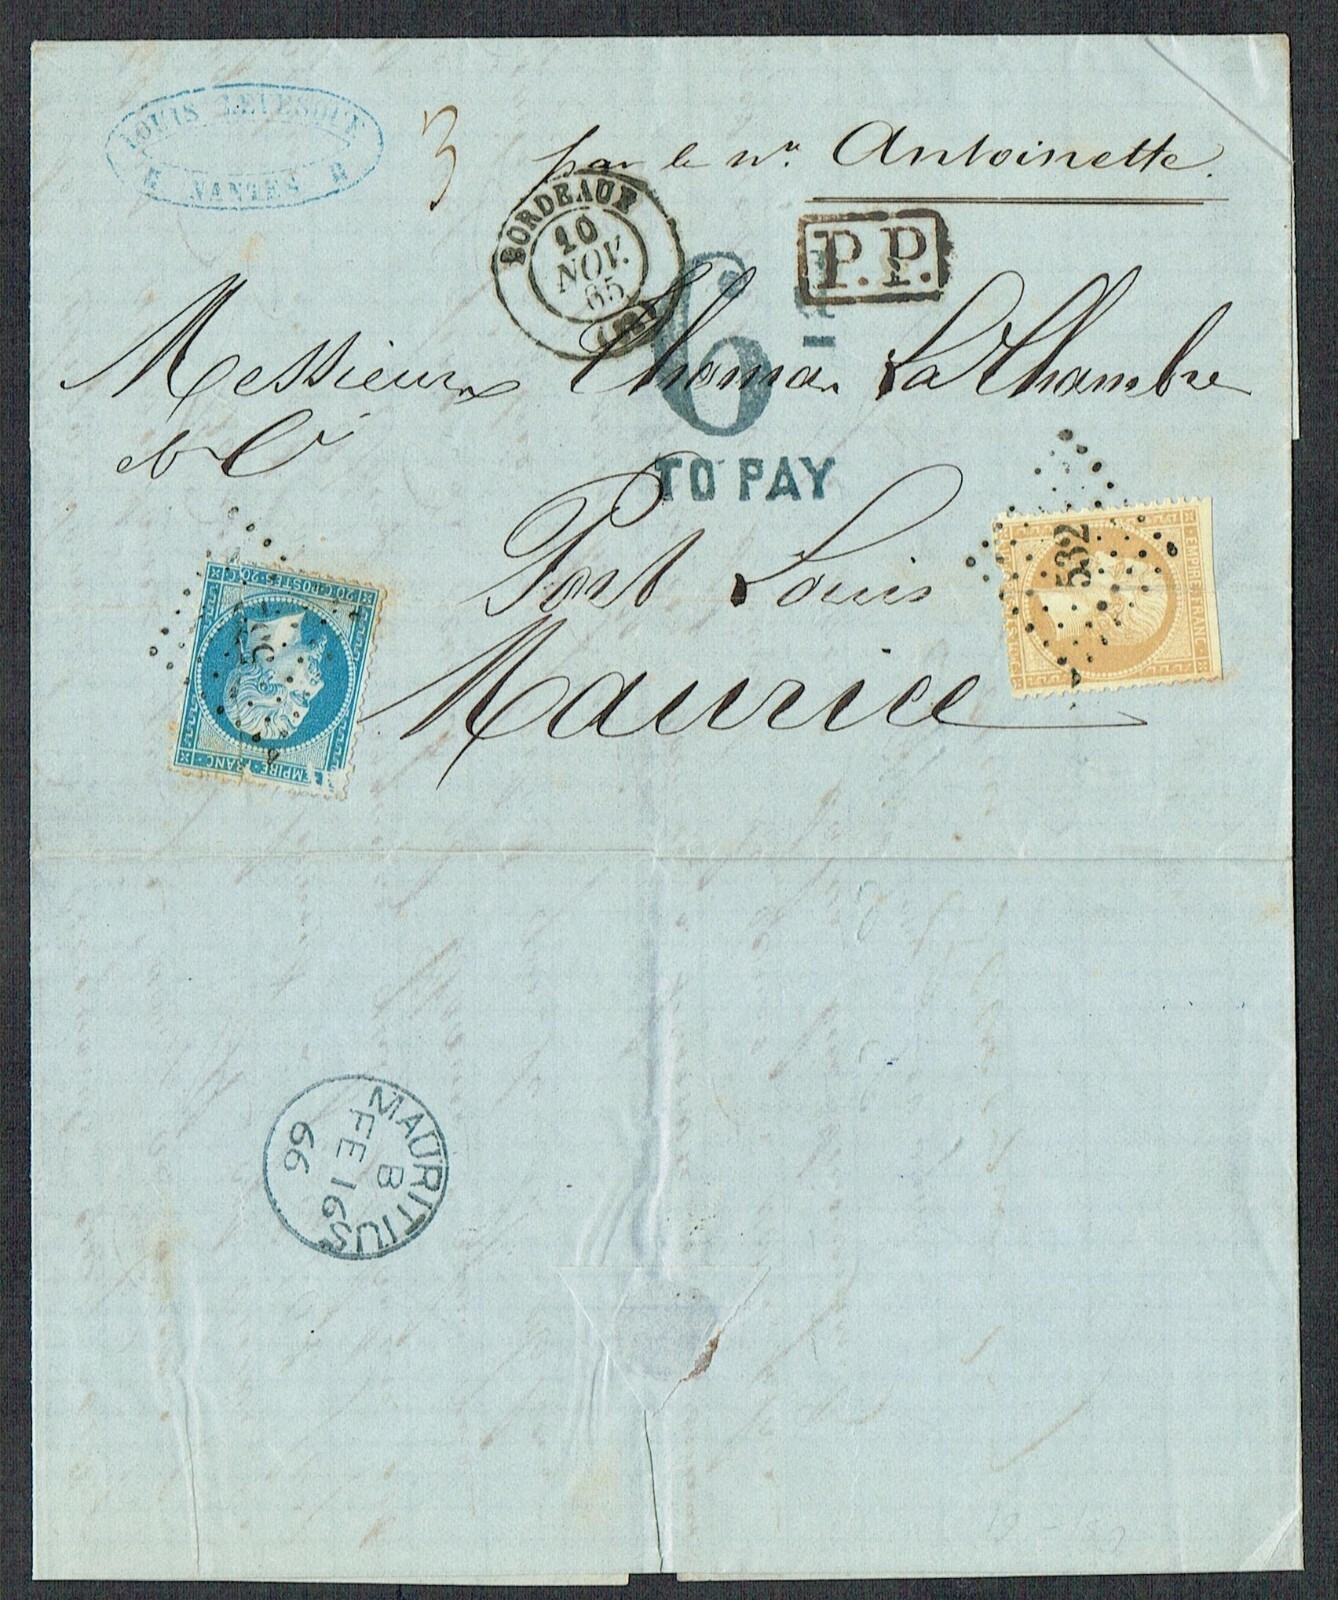 LOUIS LEVESQUE
NANTES
3
par le nre. Antoinette.
BORDEAUX
10
NOV.
65
P.P.
6
TO PAY
Messieurs Thomas La Chambre
et Cie
Port Louis
Maurice
20 C. POSTES 20 C.
EMPIRE FRANC
532
EMPIRE FRANC
MAURITIUS
B
FE 16
66